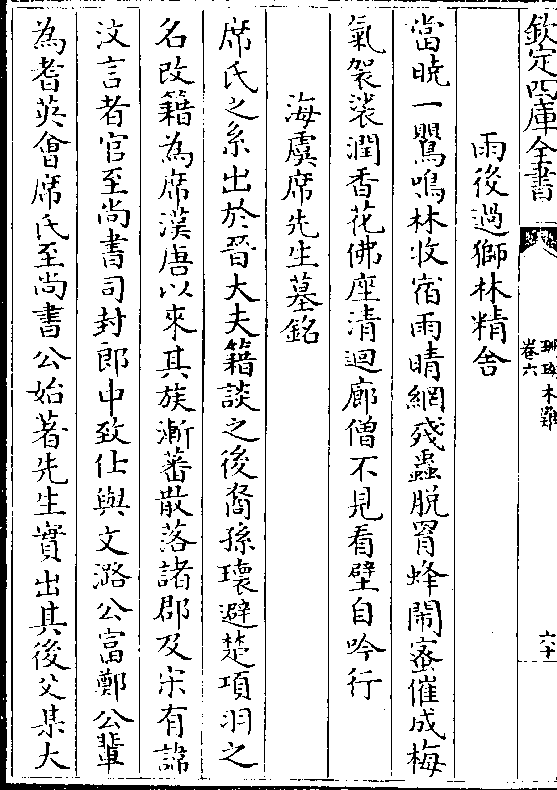 欽定四庫全書
珊瑚木難
卷六
六十
雨後過獅林精舍
當晓一鸎鳴林收宿雨晴網殘蟲脱罥蜂鬧蜜催成梅
氣袈裟潤香花佛座清迴廊僧不見看壁自吟行
海虞席先生墓銘
席氏之系出於晉大夫籍談之後裔孫瓌避楚項羽之
名改籍為席漢唐以來其族漸蕃散落諸郡及宋有諱
汶言者官至尚書司封郎中致仕與文潞公富鄭公輩
為耆英會席氏至尚書公始著先生實出其後父某大